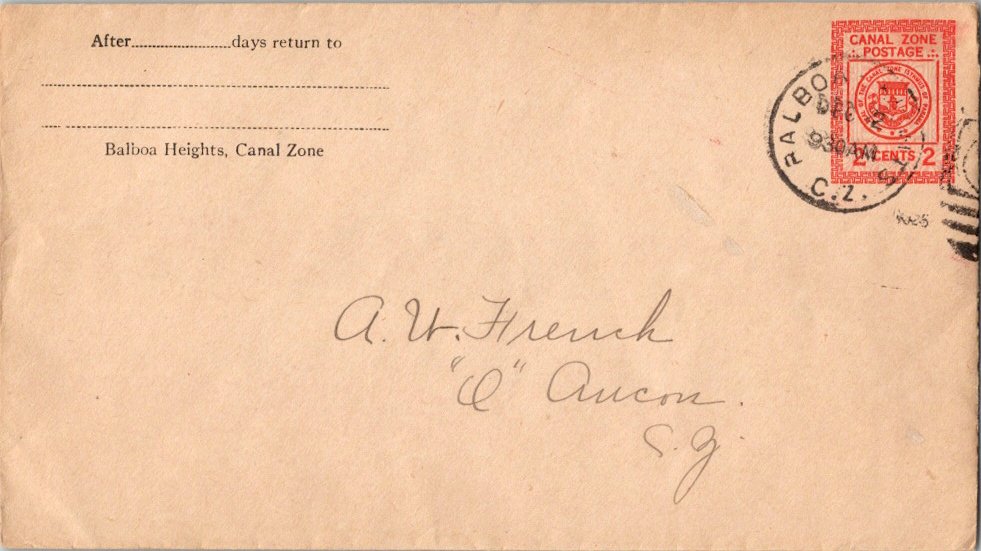 After............days return to
Balboa Heights, Canal Zone
CANAL ZONE
POSTAGE
2 CENTS 2
BALBOA HTS
DEC 2
930AM
C.Z.
A. W. French
Ancon.
C. Z.